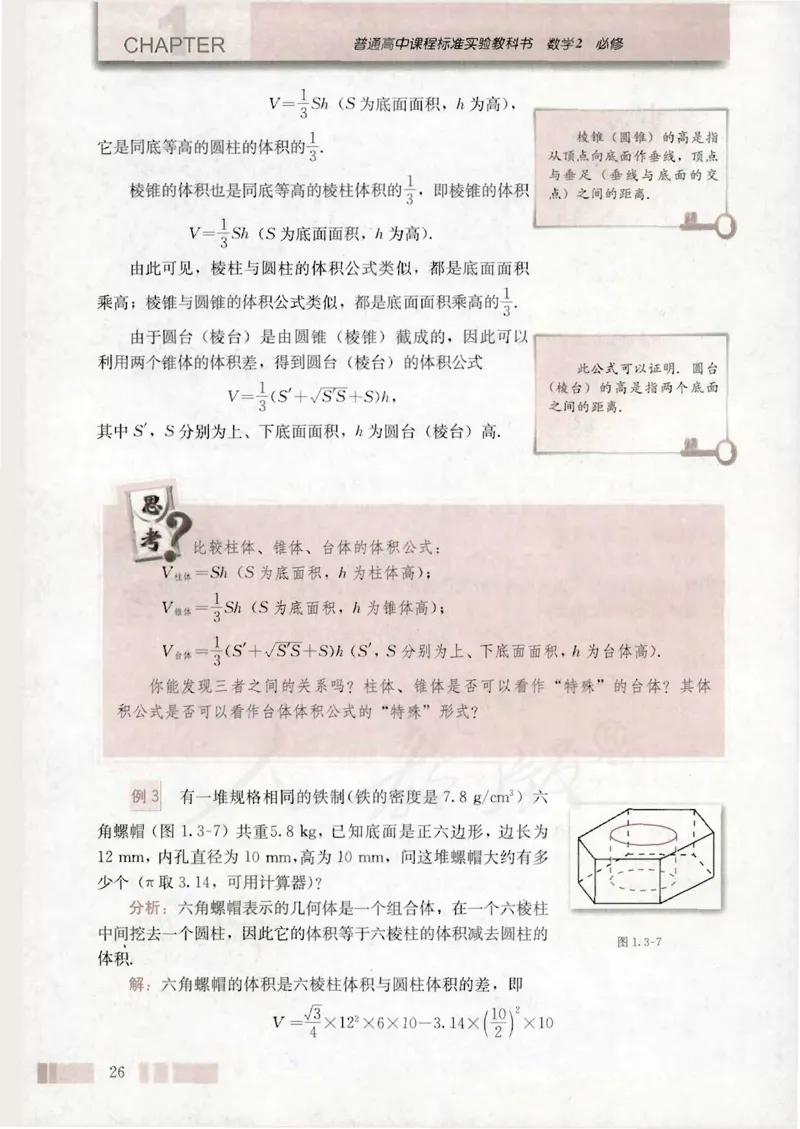 CHAPTER 1
普通高中课程标准实验教科书 数学2 必修
V=1/3Sh（S为底面面积，h为高），
它是同底等高的圆柱的体积的1/3．
棱锥的体积也是同底等高的棱柱体积的1/3，即棱锥的体积
V=1/3Sh（S为底面面积，h为高）．
由此可见，棱柱与圆柱的体积公式类似，都是底面面积
乘高；棱锥与圆锥的体积公式类似，都是底面面积乘高的1/3．
由于圆台（棱台）是由圆锥（棱锥）截成的，因此可以
利用两个锥体的体积差，得到圆台（棱台）的体积公式
V=1/3(S′+√S′S+S)h，
其中S′，S分别为上、下底面面积，h为圆台（棱台）高．
棱锥（圆锥）的高是指
从顶点向底面作垂线，顶点
与垂足（垂线与底面的交
点）之间的距离．
此公式可以证明．圆台
（棱台）的高是指两个底面
之间的距离．
思考?
比较柱体、锥体、台体的体积公式：
V柱体=Sh（S为底面积，h为柱体高）；
V锥体=1/3Sh（S为底面积，h为锥体高）；
V台体=1/3(S′+√S′S+S)h（S′，S分别为上、下底面面积，h为台体高）．
你能发现三者之间的关系吗？柱体、锥体是否可以看作“特殊”的台体？其体
积公式是否可以看作台体体积公式的“特殊”形式？
例3 有一堆规格相同的铁制(铁的密度是7.8 g/cm³）六
角螺帽（图1.3-7）共重5.8 kg，已知底面是正六边形，边长为
12 mm，内孔直径为10 mm，高为10 mm，问这堆螺帽大约有多
少个（π取3.14，可用计算器）？
分析：六角螺帽表示的几何体是一个组合体，在一个六棱柱
中间挖去一个圆柱，因此它的体积等于六棱柱的体积减去圆柱的
体积．
图1.3-7
解：六角螺帽的体积是六棱柱体积与圆柱体积的差，即
V=√3/4×12²×6×10−3.14×(10/2)²×10
26